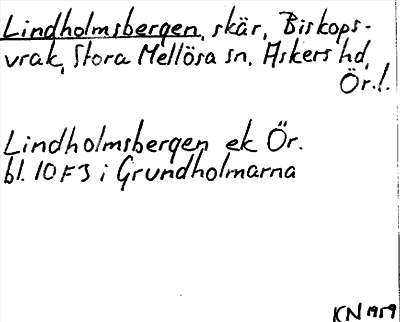 Lindholmsbergen, skär, Biskops-
vrak, Stora Mellösa sn, Askers hd,
Ör.l.
Lindholmsbergen ek Ör.
bl. 10F3 i Grundholmarna
KN 1959